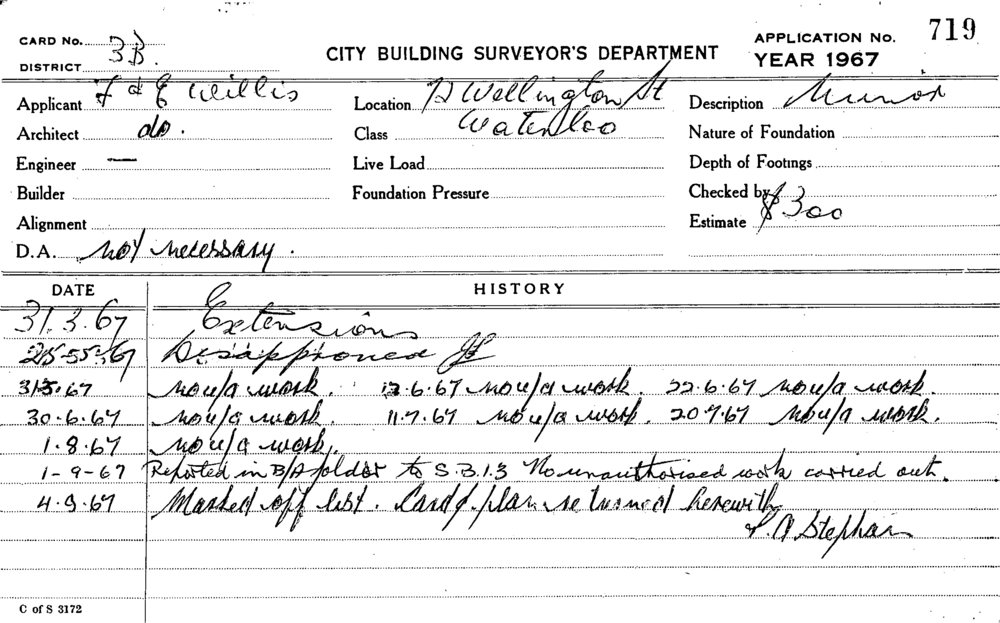 CARD No. 3B. CITY BUILDING SURVEYOR'S DEPARTMENT APPLICATION No. 719
DISTRICT YEAR 1967
Applicant F & E Willis Location Wellington St Description Minor
Architect do. Class Waterloo Nature of Foundation
Engineer — Live Load Depth of Footings
Builder Foundation Pressure Checked by
Alignment Estimate $300
D.A. not necessary.
DATE HISTORY
31.3.67 Extensions
25.5.67 Disapproved
31.5.67 no u/a work. 12.6.67 no u/a work. 22.6.67 no u/a work.
30.6.67 no u/a work. 11.7.67 no u/a work. 20.7.67 no u/a work.
1.8.67 no u/a work.
1-9-67 Reported in B/A folder to S.B.I.3 No unauthorised work carried out.
4.9.67 Marked off list. Card & plan returned herewith
A Stephan
C of S 3172